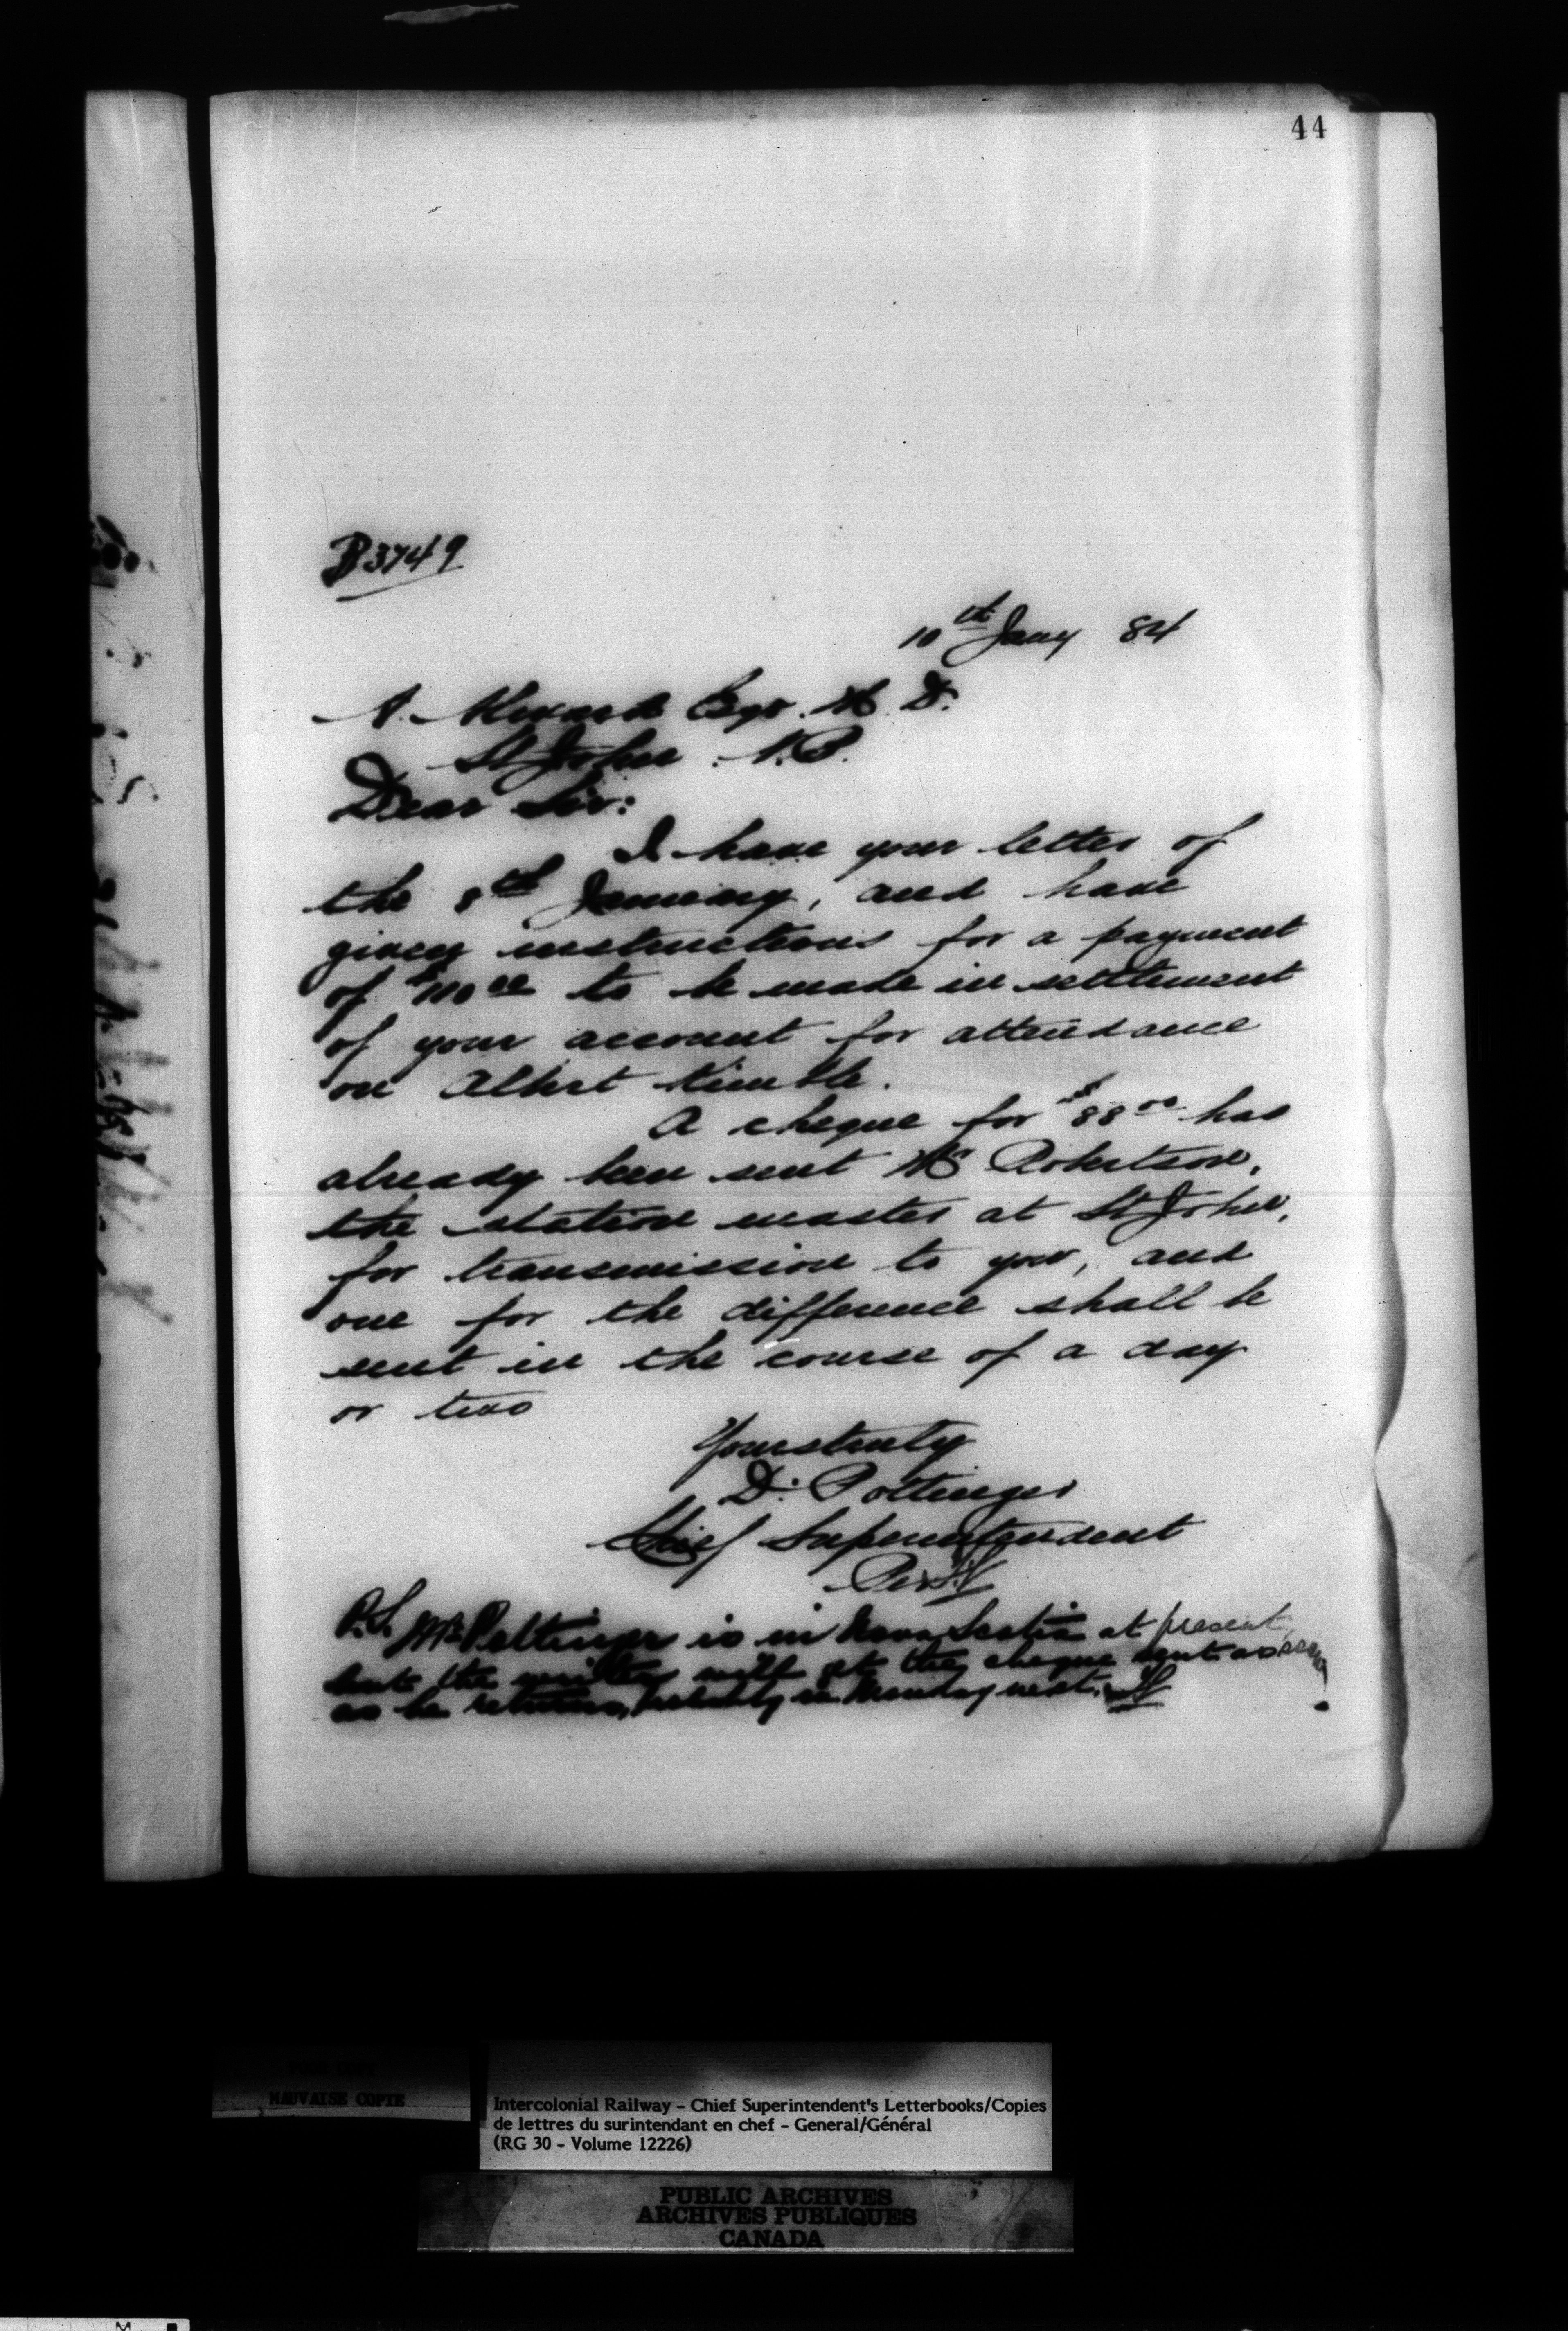 44
B 3749
10th Jany 84
Esqr. M. D.
St John. N.B.
Dear Sir:
I have your letter of
the 8th January, and have
given instructions for a payment
of $110 00 to be made in settlement
of your account for attendance
on Albert Kimble.
A cheque for $88 00 has
already been sent Mr Robertson,
the station master at St John,
for transmission to you, and
one for the difference shall be
sent in the course of a day
or two
Yours truly
D. Pottinger
Chief Superintendent
Per
P.S. Mr Pottinger is in Nova Scotia at present,
but the writer will get the cheque sent as soon
as he returns, probably on Monday next.
MAUVAISE COPIE
Intercolonial Railway - Chief Superintendent's Letterbooks/Copies
de lettres du surintendant en chef - General/Général
(RG 30 - Volume 12226)
PUBLIC ARCHIVES
ARCHIVES PUBLIQUES
CANADA